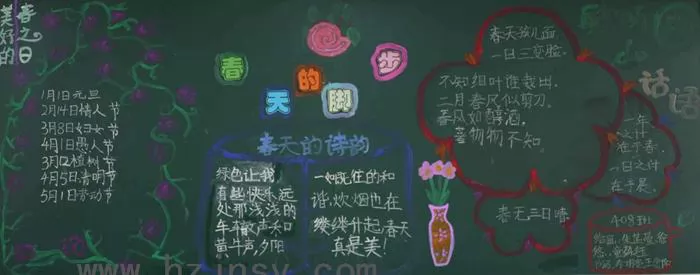 春之日
美好的
1月1日元旦
2月14日情人节
3月8日妇女节
4月1日愚人节
3月12植树节
4月5日清明节
5月1日劳动节
春天的脚步
春天的诗韵
绿色让我
有些快乐远
处那浅浅的
牛车歌声和
黄牛声,夕阳
一如既往的和
谐.炊烟也在
缕缕升起.春天
真是美!
春天孩儿面
一日三变脸.
不知细叶谁裁出.
二月春风似剪刀.
春风如醇酒,
著物物不知.
春无三日晴
话语
一年
之计
在于春.
一日之计
在于晨.
408班
www.hzjnsy.com